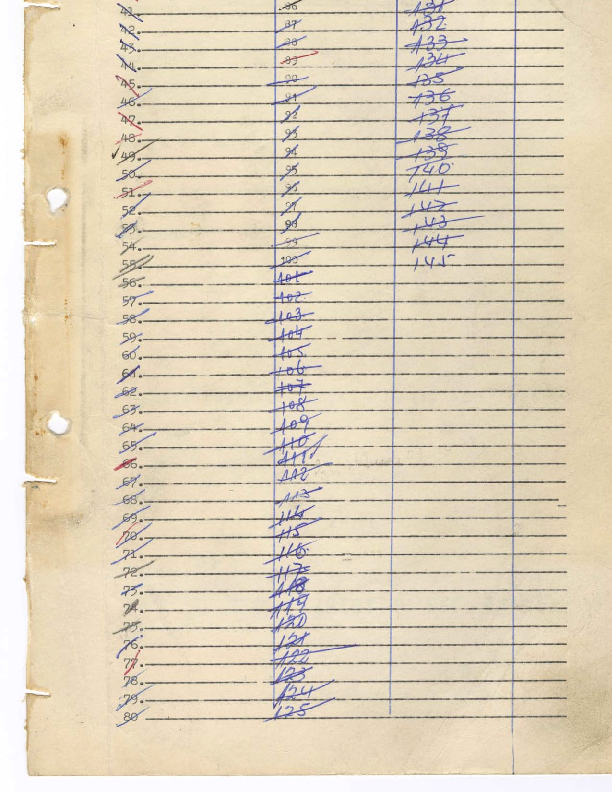 41.
42.
43.
44.
45.
46.
47.
48.
49.
50.
51.
52.
53.
54.
55.
56.
57.
58.
59.
60.
61.
62.
63.
64.
65.
66.
67.
68.
69.
70.
71.
72.
73.
74.
75.
76.
77.
78.
79.
80.
86
87
88
89
90
91
92
93
94
95
96
97
98
99
100
101
102
103
104
105
106
107
108
109
110
111
112
113
114
115
116
117
118
119
120
121
122
123
124
125
131
132
133
134
135
136
137
138
139
140
141
142
143
144
145